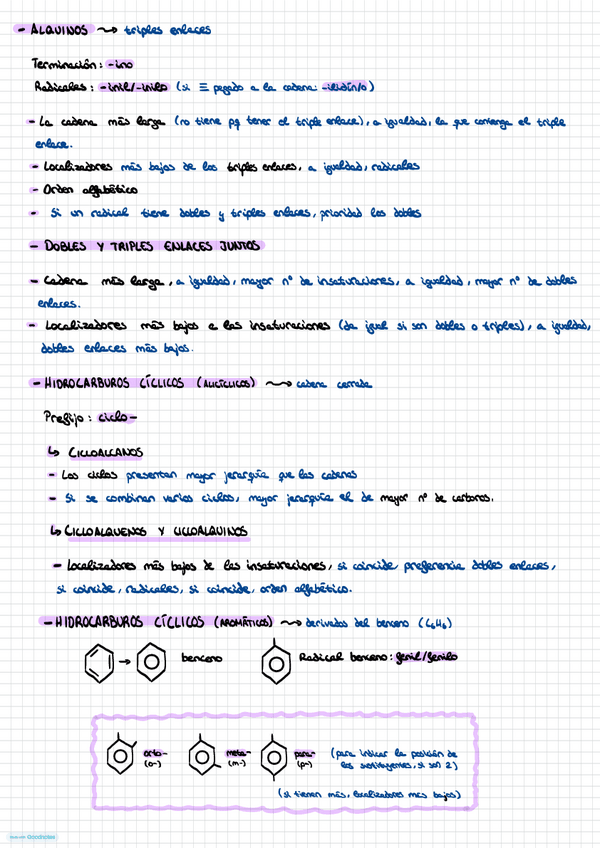 - ALQUINOS ⟿ triples enlaces
Terminación: -ino
Radicales: -inil/-inilo (si ≡ pegado a la cadena: -ilidín/o)
- La cadena más larga (no tiene pq tener el triple enlace), a igualdad, la que contenga el triple
enlace.
- Localizadores más bajos de los triples enlaces, a igualdad, radicales
- Orden alfabético
- Si un radical tiene dobles y triples enlaces, prioridad los dobles
- DOBLES Y TRIPLES ENLACES JUNTOS
- Cadena más larga, a igualdad, mayor nº de insaturaciones, a igualdad, mayor nº de dobles
enlaces.
- Localizadores más bajos a las insaturaciones (da igual si son dobles o triples), a igualdad,
dobles enlaces más bajos.
- HIDROCARBUROS CÍCLICOS (ALICÍCLICOS) ⟿ cadena cerrada
Prefijo: ciclo-
↳ CICLOALCANOS
- Los ciclos presentan mayor jerarquía que las cadenas
- Si se combinan varios ciclos, mayor jerarquía el de mayor nº de carbonos.
↳ CICLOALQUENOS Y CICLOALQUINOS
- Localizadores más bajos de las insaturaciones, si coincide, preferencia dobles enlaces,
si coincide, radicales, si coincide, orden alfabético.
- HIDROCARBUROS CÍCLICOS (AROMÁTICOS) ⟿ derivados del benceno (C₆H₆)
→ benceno Radical benceno: fenil/fenilo
orto- meta- para- (para indicar la posición de
(o-) (m-) (p-) los sustituyentes, si son 2)
(si tienen más, localizadores más bajos)
Made with Goodnotes